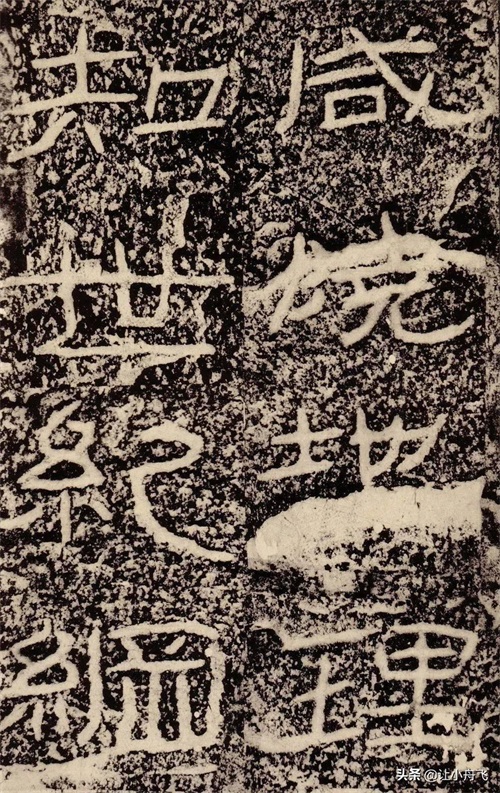 咸曉地理
知世紀綱
头条 @让小舟飞